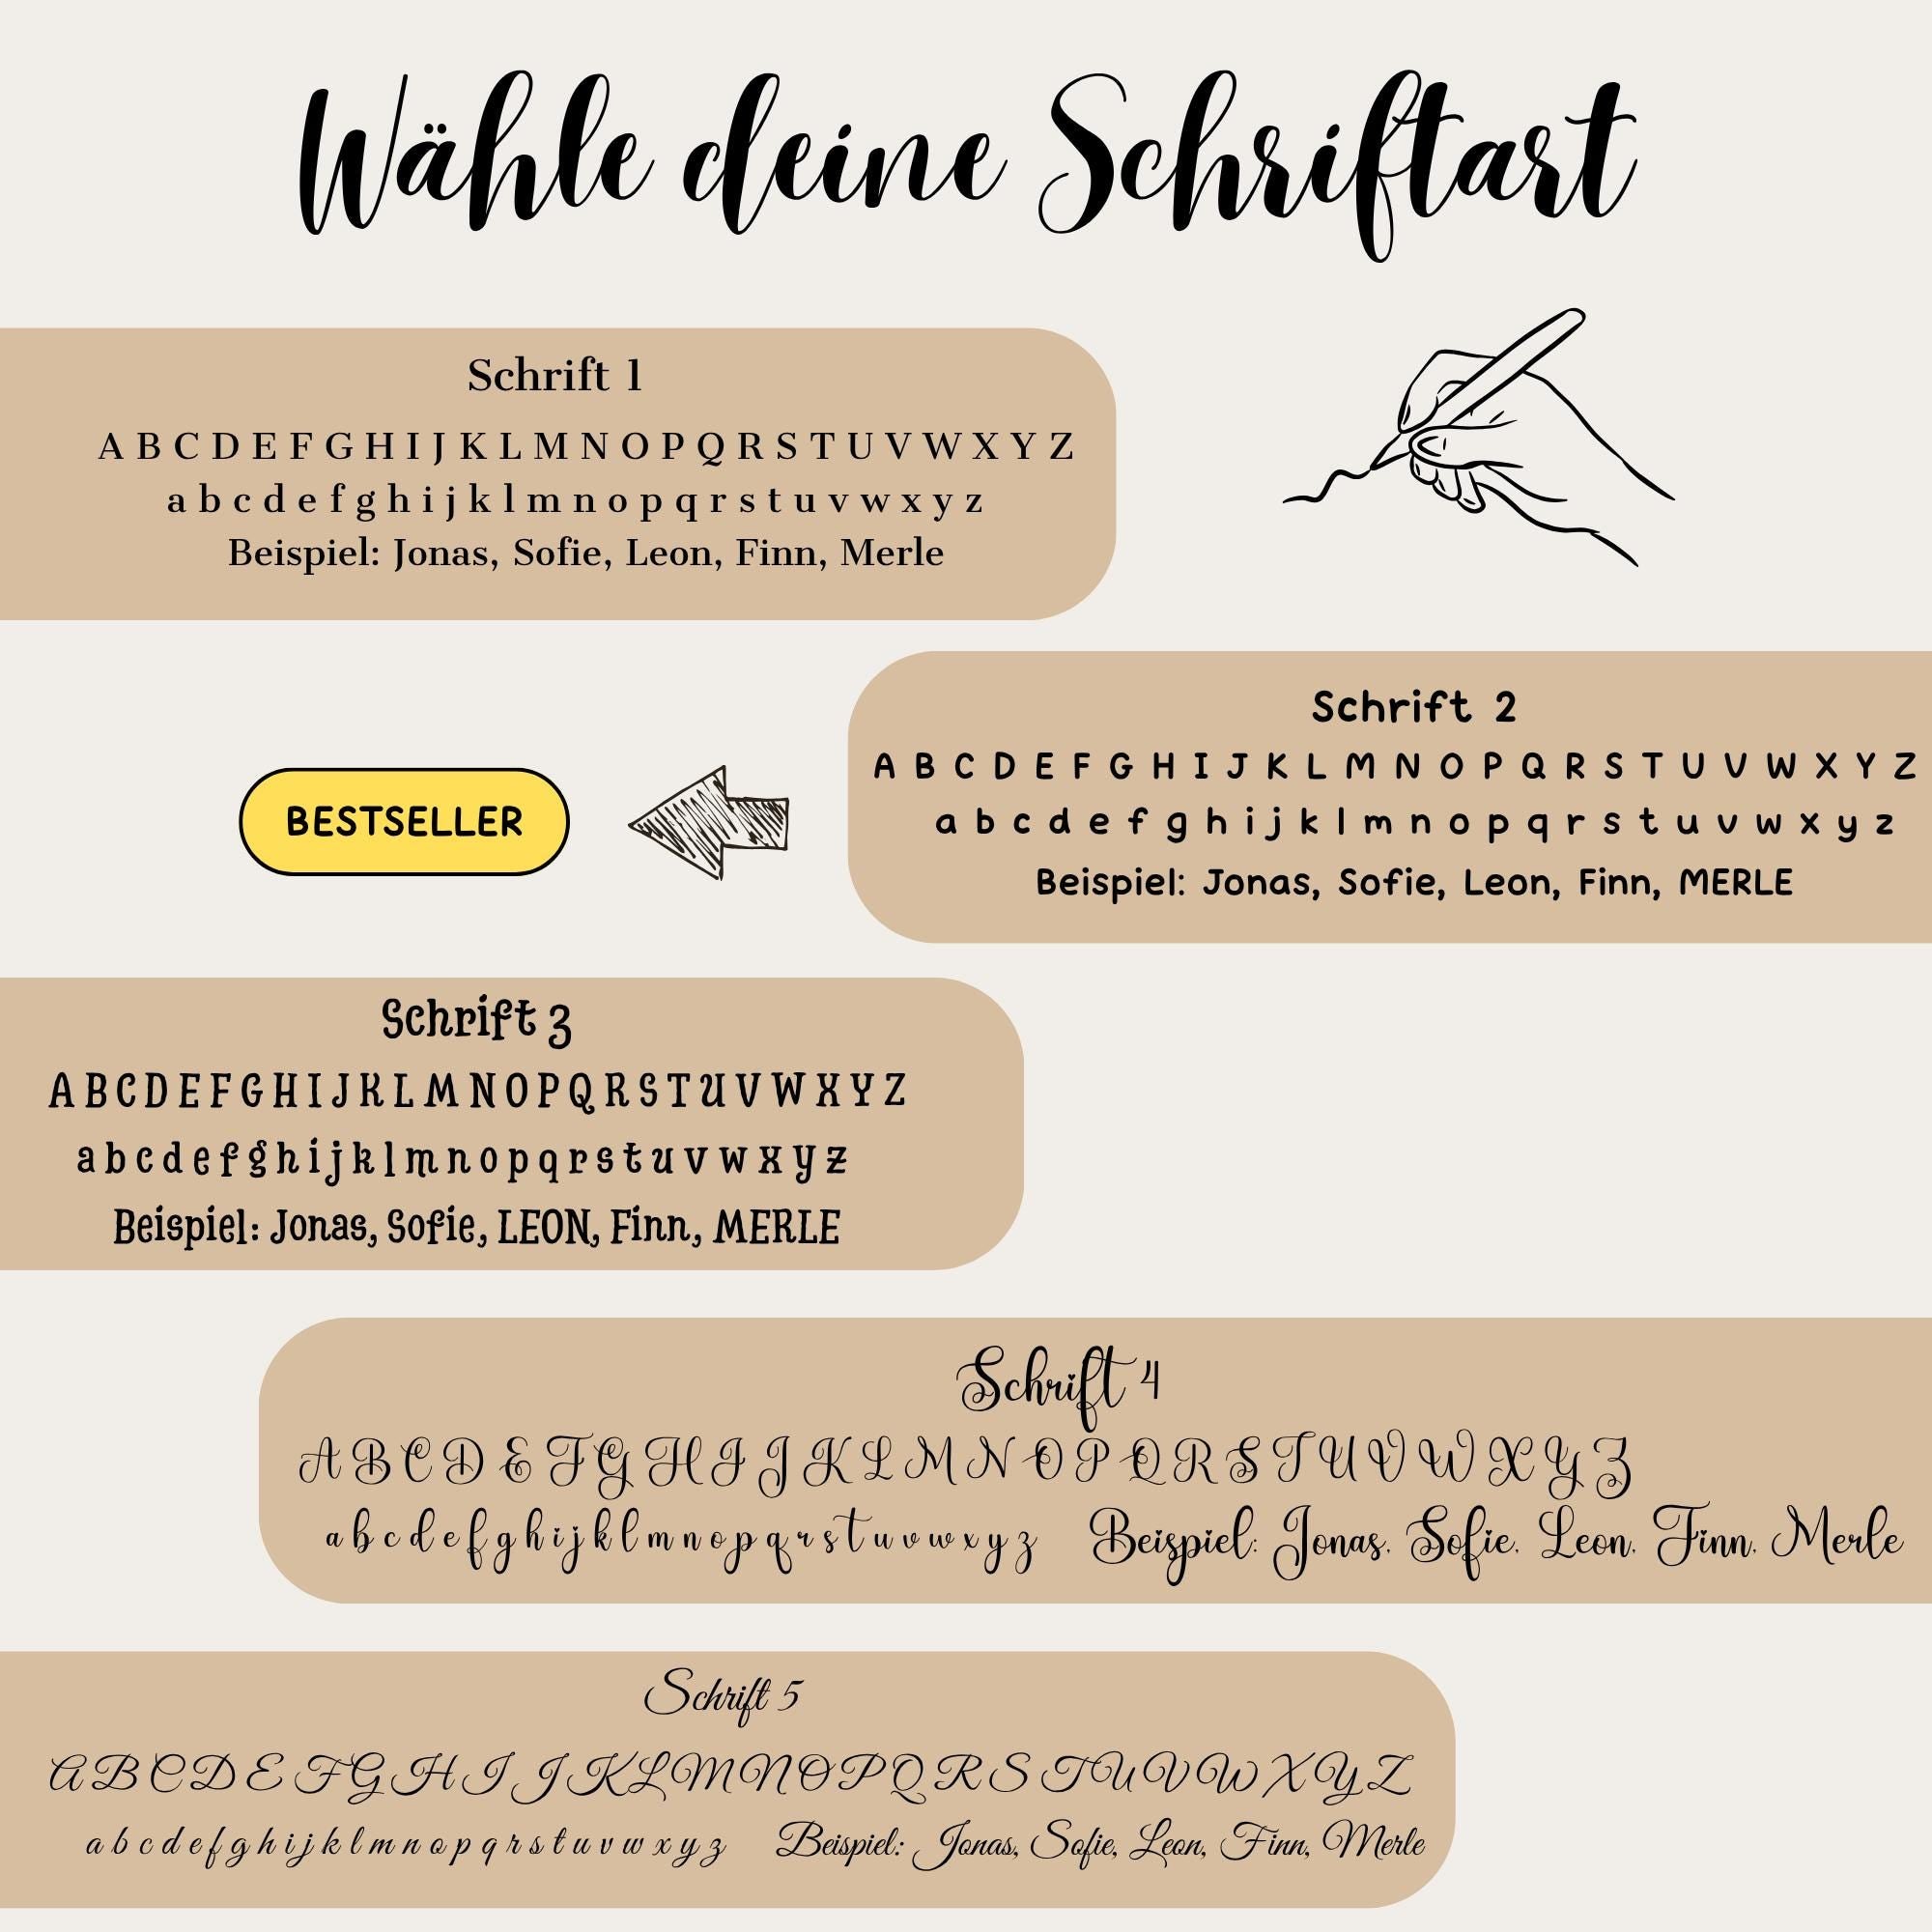 Wähle deine Schriftart
Schrift 1
A B C D E F G H I J K L M N O P Q R S T U V W X Y Z
a b c d e f g h i j k l m n o p q r s t u v w x y z
Beispiel: Jonas, Sofie, Leon, Finn, Merle
Schrift 2
A B C D E F G H I J K L M N O P Q R S T U V W X Y Z
a b c d e f g h i j k l m n o p q r s t u v w x y z
Beispiel: Jonas, Sofie, Leon, Finn, MERLE
BESTSELLER
Schrift 3
A B C D E F G H I J K L M N O P Q R S T U V W X Y Z
a b c d e f g h i j k l m n o p q r s t u v w x y z
Beispiel: Jonas, Sofie, LEON, Finn, MERLE
Schrift 4
A B C D E F G H I J K L M N O P Q R S T U V W X Y Z
a b c d e f g h i j k l m n o p q r s t u v w x y z
Beispiel: Jonas, Sofie, Leon, Finn, Merle
Schrift 5
A B C D E F G H I J K L M N O P Q R S T U V W X Y Z
a b c d e f g h i j k l m n o p q r s t u v w x y z
Beispiel: Jonas, Sofie, Leon, Finn, Merle